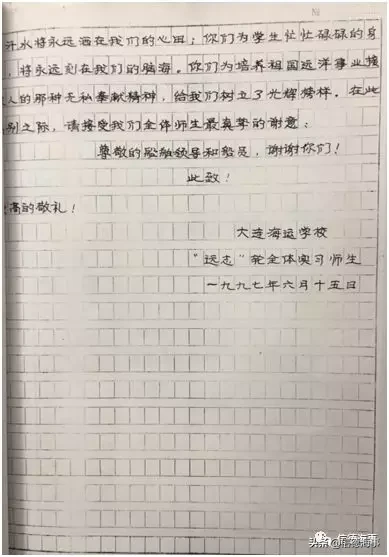 汗水将永远洒在我们的心田；你们为学生忙忙碌碌的身
，将永远刻在我们的脑海。你们为培养祖国远洋事业接
人的那种无私奉献精神，给我们树立了光辉榜样。在此
别之际，请接受我们全体师生最真挚的谢意：
尊敬的船舶领导和船员，谢谢你们！
此致！
高的敬礼！
大连海运学校
“远志”轮全体实习师生
一九九七年六月十五日